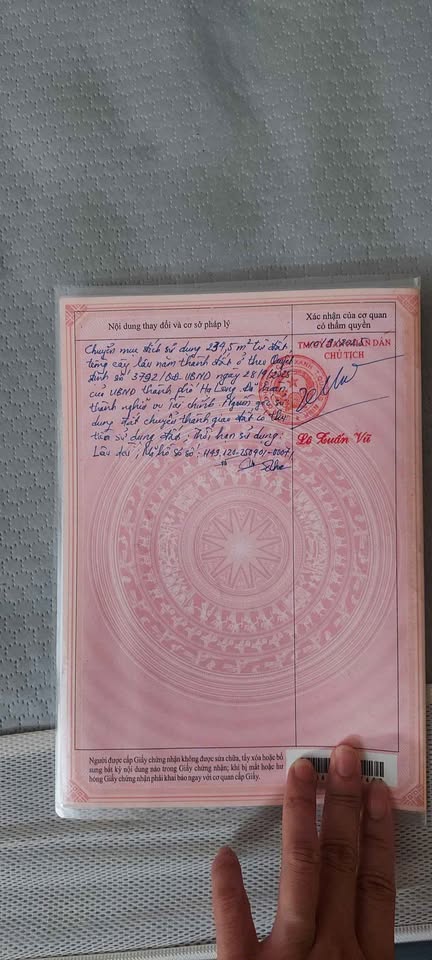 Nội dung thay đổi và cơ sở pháp lý
Xác nhận của cơ quan
có thẩm quyền
Chuyển mục đích sử dụng 234,5 m² từ đất
trồng cây lâu năm thành đất ở theo Quyết
định số 3792/QĐ.UBND ngày 28/4/2025
của UBND thành phố Hạ Long. Đã hoàn
thành nghĩa vụ tài chính. Nguồn gốc sử
dụng đất chuyển thành giao đất có thu
tiền sử dụng đất; thời hạn sử dụng:
Lâu dài; Mã hồ sơ số:
10/9/2025
CHỦ TỊCH
Lê Tuấn Vũ
Người được cấp Giấy chứng nhận không được sửa chữa, tẩy xóa hoặc bổ
sung bất kỳ nội dung nào trong Giấy chứng nhận; khi bị mất hoặc hư
hỏng Giấy chứng nhận phải khai báo ngay với cơ quan cấp Giấy.